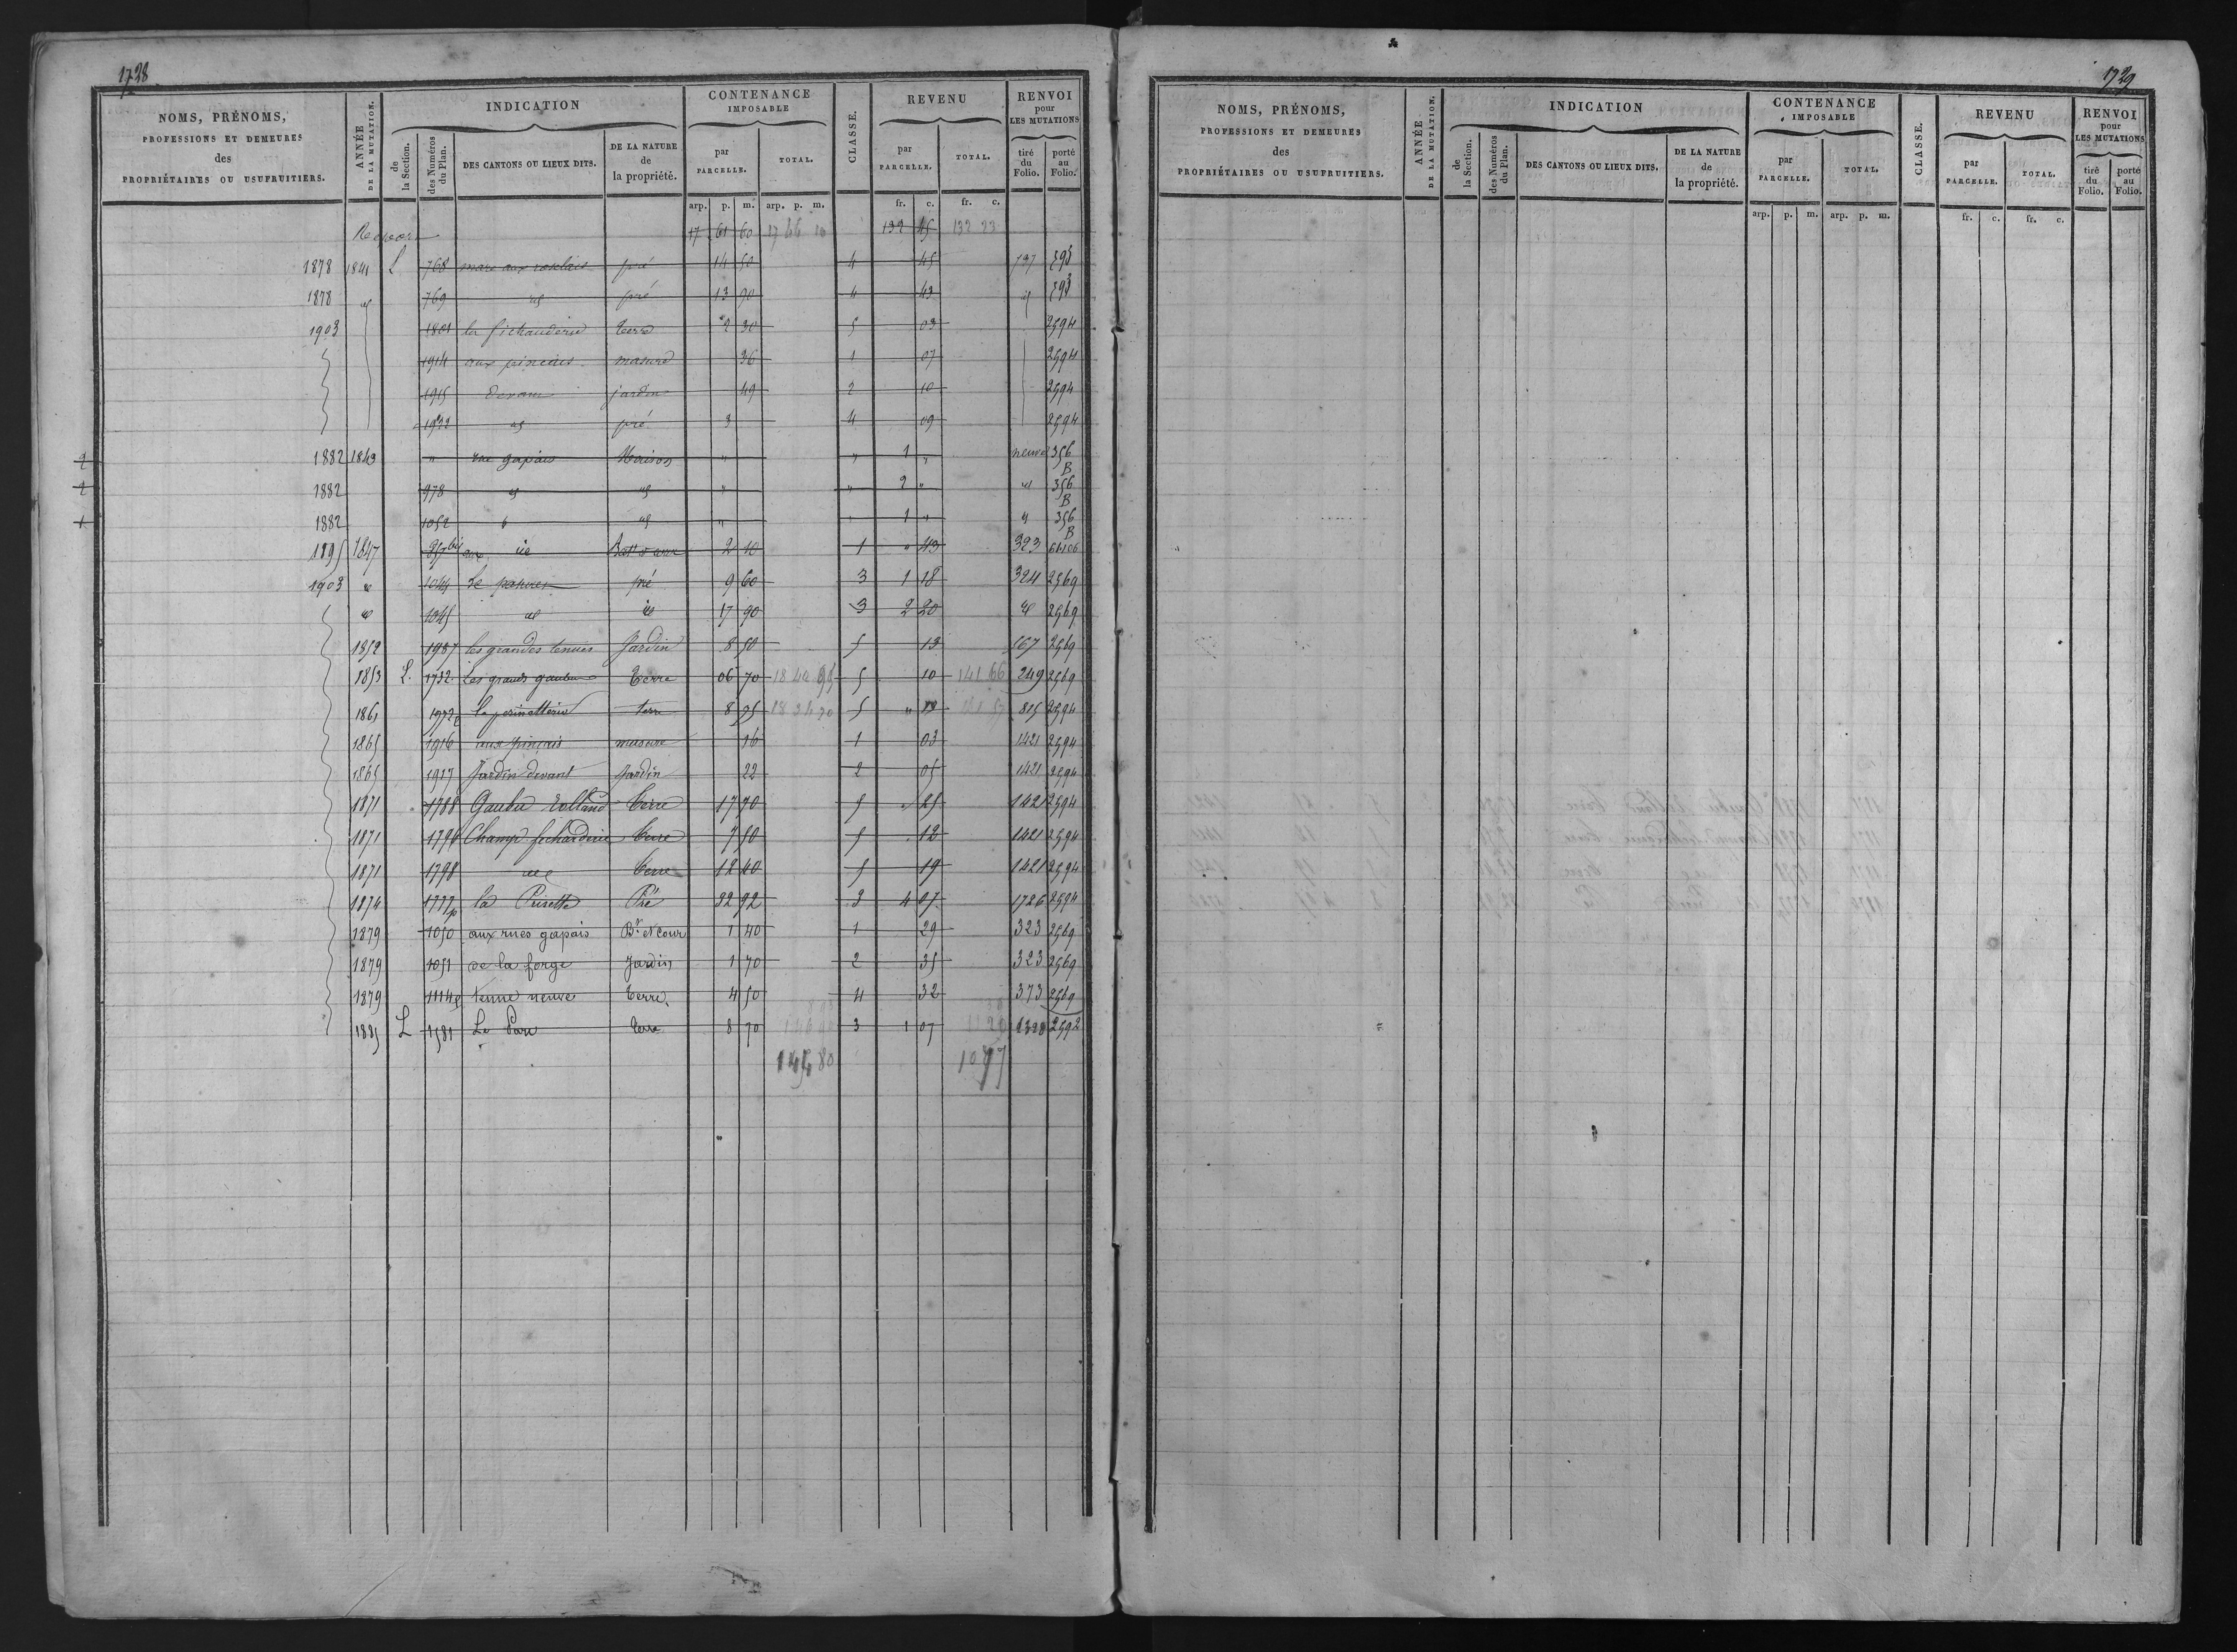 1728
NOMS, PRÉNOMS, PROFESSIONS ET DEMEURES des PROPRIÉTAIRES OU USUFRUITIERS.
ANNÉE DE LA MUTATION.
INDICATION
de la Section.
des Numéros du Plan.
DES CANTONS OU LIEUX DITS.
DE LA NATURE de la propriété.
CONTENANCE IMPOSABLE
par PARCELLE.
TOTAL.
CLASSE.
REVENU
par PARCELLE.
TOTAL.
RENVOI pour LES MUTATIONS
tiré du Folio.
porté au Folio.
arp. p. m. arp. p. m. fr. c. fr. c.
17 61 60 17 66 10 132 45 132 23
1878 1841 L 768 mare aux pré 14 50 4 45 737 593
1878 id 769 id pré 13 90 4 43 id 593
1903 1801 la terre 2 30 5 03 2594
1914 aux masure 36 1 07 2594
1915 devant jardin 49 2 10 2594
1932 id pré 3 4 09 2594
2 1882 1843 " rue gapais Maison " " 1 " neuve 356 B
2 1882 978 id id " " 2 " id 356 B
1 1882 1052 id " " 1 " id 356 B
1895 1847 857 bis aux 2 10 1 " 43 323
1903 id 1044 Le pré 9 60 3 1 18 324 2569
id 1045 id id 17 90 3 2 20 id 2569
1852 1987 les grandes tenues Jardin 8 50 5 13 567 2569
1853 L. 1732 Les grands Terre 06 70 5 10 141 66 249 2569
1861 1972 p la perinetterie terre 8 75 5 " 13 815 2594
1865 1916 aux pinçais masure 16 1 03 1421 2594
1865 1917 Jardin devant Jardin 22 2 05 1421 2594
1871 1788 Gaubu Rolland Terre 17 70 5 " 25 1421 2594
1871 1796 Champ fichardrie Terre 7 50 5 . 12 1421 2594
1871 1798 id Terre 12 40 5 19 1421 2594
1874 1777 p la Pré 32 92 3 4 07 1726 2594
1879 1050 aux rues gapais Bt et cour 1 40 1 29 323 2569
1879 1051 de la forge Jardin 1 70 2 35 323 2569
1879 tenue neuve Terre. 4 50 4 32 373 2569
1885 L 1581 Le Parc Terre 8 70 3 1 07 1328 2592
1729
NOMS, PRÉNOMS, PROFESSIONS ET DEMEURES des PROPRIÉTAIRES OU USUFRUITIERS.
ANNÉE DE LA MUTATION.
INDICATION
de la Section.
des Numéros du Plan.
DES CANTONS OU LIEUX DITS.
DE LA NATURE de la propriété.
CONTENANCE IMPOSABLE
par PARCELLE.
TOTAL.
CLASSE.
REVENU
par PARCELLE.
TOTAL.
RENVOI pour LES MUTATIONS
tiré du Folio.
porté au Folio.
arp. p. m. arp. p. m. fr. c. fr. c.